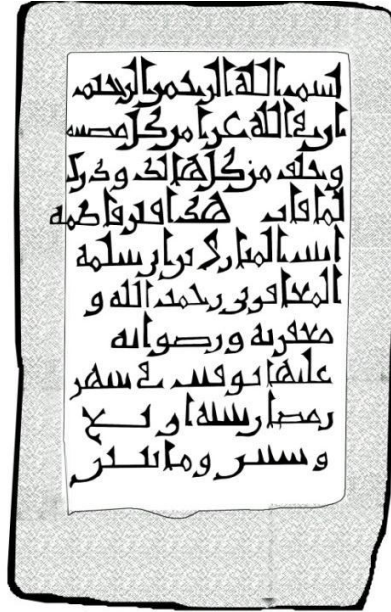 بسم الله الرحمن الرحيم
ان في الله عزا من كل مصيبة
وخلف من كل هالك ودرك
لما فات هذا قبر فاطمة
ابنت المبارك سلمة
المعافري رحمت الله و
مغفرته ورضوانه
عليها توفيت في شهر
رمضان سنة اربع
وستين ومائتين